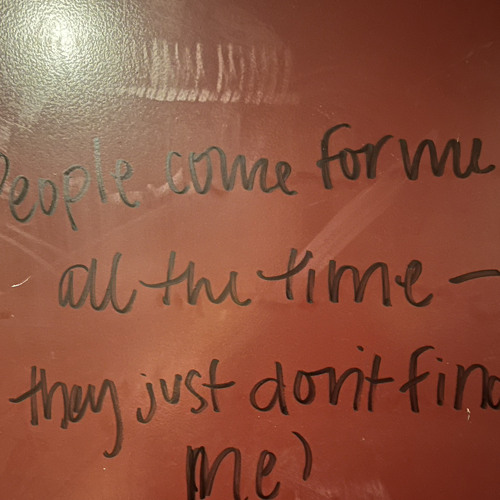 People come for me
all the time -
they just don't find
me)